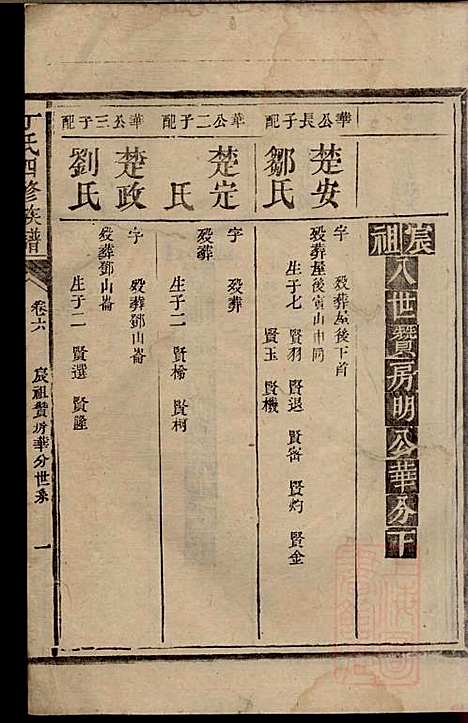 宸祖八世贊房明公華分下
華公長子配
楚安
鄒氏
字 歿葬屋後下首
歿葬屋後寅山申向
生子七 賢羽 賢退 賢富 賢灼 賢金
賢玉 賢機
華公二子配
楚定
氏
字 歿葬
歿葬
生子二 賢榆 賢柯
華公三子配
楚政
劉氏
字 歿葬鄧山崙
歿葬鄧山崙
生子二 賢選 賢隆
丁氏四修族譜
卷六 宸祖贊房華分世系 一